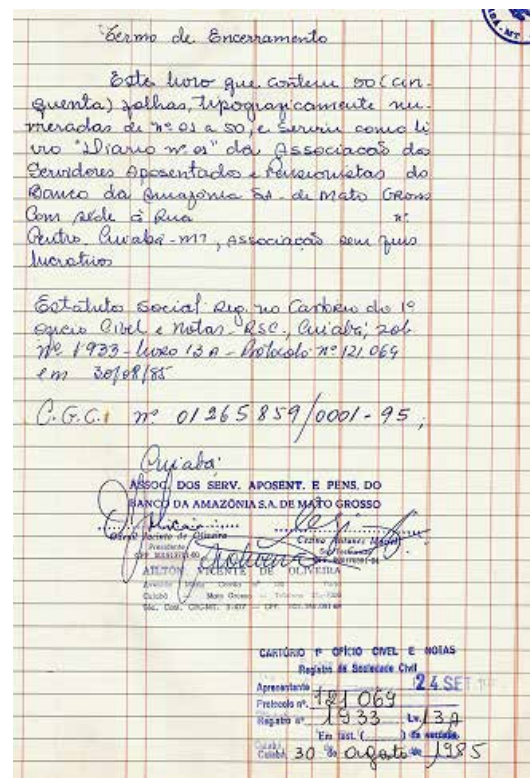 Termo de Encerramento
Este livro que contem 50 (cin-
quenta) folhas, tipograficamente nu-
meradas de nº 01 a 50, e serviu como li
vro "Diario nº 01" da Associacão dos
Servidores Aposentados e Pensionistas do
Banco da Amazônia SA. de Mato Grosso
Com sede à Rua nº
Centro, Cuiabá-MT, associação sem fins
lucrativos
Estatuto Social Reg. no Cartório do 1º
oficio Civel e Notas - RSC., Cuiabá, sob
nº 1933 - livro 13 A - Protocolo nº 121 069
em 30/08/85
C.G.C. nº 01265859/0001-95,
Cuiabá,
ASSOC. DOS SERV. APOSENT. E PENS. DO
BANCO DA AMAZÔNIA S.A. DE MATO GROSSO
Jacinto de Oliveira
Presidente
AILTON VICENTE DE OLIVEIRA
Cuiabá Mato Grosso
CARTÓRIO 1º OFÍCIO CIVEL E NOTAS
Registro de Sociedade Civil
Apresentante 24 SET
Protocolo nº. 121 069
Registro nº 1933 Lv. 13 A
Em test. ( ) da verdade
Cuiabá, 30 de Agosto de 1985